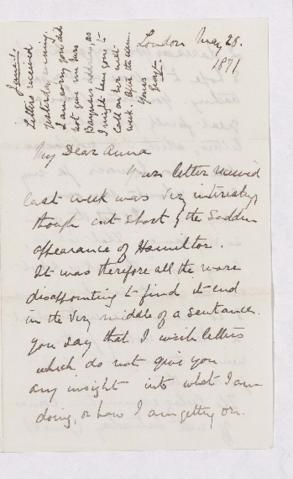 London May 28.
1871
Fannie's
letters received
yesterday evening.
I am sorry you did
not give me Mrs
address, as
I might have gone to
call on her next
week. After the
Yours
My Dear Anna
Your letter received
last week was very interesting,
though cut short by the sudden
appearance of Hamilton.
It was therefore all the more
disappointing to find it end
in the very middle of a sentence.
You say that I write letters
which do not give you
any insight into what I am
doing, or how I am getting on.